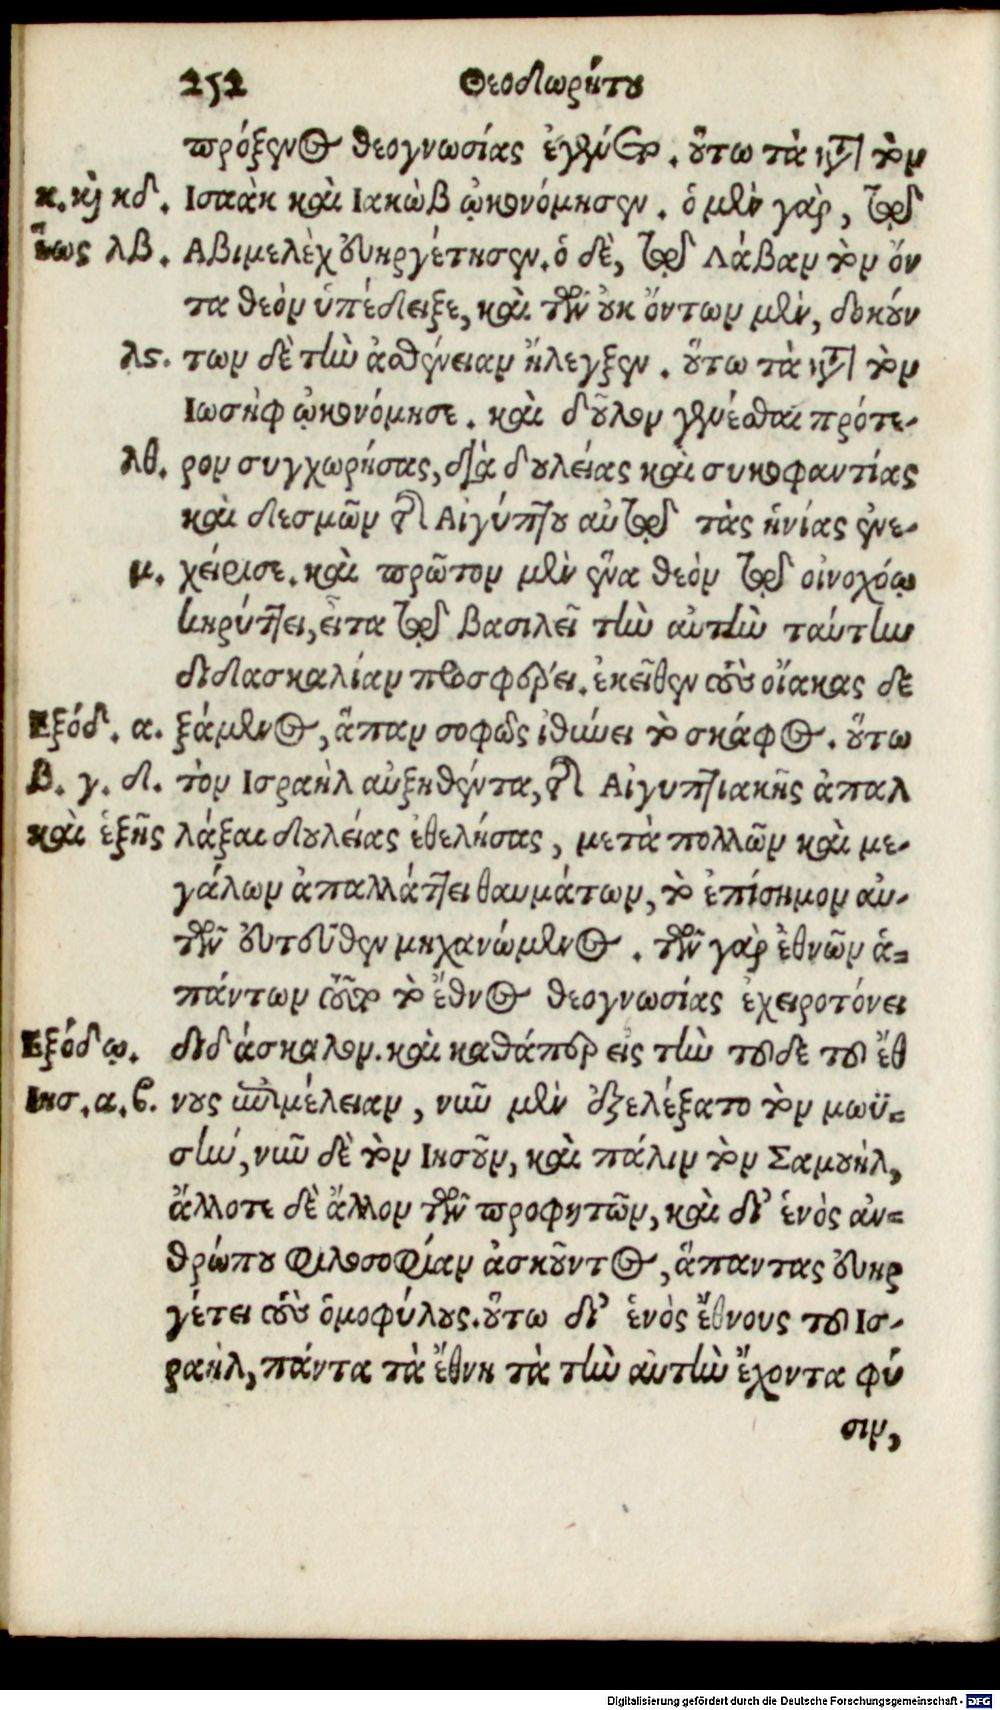 252 Θεοδωρήτου
πρόξενος θεογνωσίας ἐγένετο. οὕτω τὰ κατὰ τὸν
κ. καὶ κδ. Ισαὰκ καὶ Ιακὼβ ᾠκονόμησεν. ὁ μὲν γὰρ, τὸν
ἕως λβ. Αβιμελὲχ εὐηργέτησεν. ὁ δὲ, τῷ Λάβαν τὸν ὄν
τα θεὸν ὑπέδειξε, καὶ τῶν οὐκ ὄντων μὲν, δοκούν
λς. των δὲ τὴν ἀσθένειαν ἤλεγξεν. οὕτω τὰ κατὰ τὸν
Ιωσὴφ ᾠκονόμησε. καὶ δοῦλον γενέσθαι πρότε-
λθ. ρον συγχωρήσας, διὰ δουλείας καὶ συκοφαντίας
καὶ δεσμῶν τῆς Αἰγύπτου αὐτῷ τὰς ἡνίας ἐνε-
μ. χείρισε. καὶ πρῶτον μὲν ἕνα θεὸν τῷ οἰνοχόῳ
κηρύττει, εἶτα τῷ βασιλεῖ τὴν αὐτὴν ταύτην
διδασκαλίαν προσφέρει. ἐκεῖθεν τοὺς οἴακας δε
Εξόδ. α. ξάμενος, ἅπαν σοφῶς ἰθύνει τὸ σκάφος. οὕτω
β. γ. δ. τὸν Ισραὴλ αὐξηθέντα, τῆς Αἰγυπτιακῆς ἀπαλ
καὶ ἑξῆς λάξαι δουλείας ἐθελήσας, μετὰ πολλῶν καὶ με-
γάλων ἀπαλλάττει θαυμάτων, τὸ ἐπίσημον αὐ-
τῶν ἐντεῦθεν μηχανώμενος. τῶν γὰρ ἐθνῶν ἁ-
πάντων τοῦτο τὸ ἔθνος θεογνωσίας ἐχειροτόνει
Εξόδῳ. διδάσκαλον. καὶ καθάπερ εἰς τὴν τοῦδε τοῦ ἔθ
Ιησ. α. β. νους ἐπιμέλειαν, νῦν μὲν ἐξελέξατο τὸν μωϋ-
σῆν, νῦν δὲ τὸν Ιησοῦν, καὶ πάλιν τὸν Σαμουὴλ,
ἄλλοτε δὲ ἄλλον τῶν προφητῶν, καὶ δι’ ἑνὸς ἀν-
θρώπου φιλοσοφίαν ἀσκοῦντος, ἅπαντας εὐηρ
γέτει τοὺς ὁμοφύλους. οὕτω δι’ ἑνὸς ἔθνους τοῦ Ισ-
ραὴλ, πάντα τὰ ἔθνη τὰ τὴν αὐτὴν ἔχοντα φύ
σιν,
Digitalisierung gefördert durch die Deutsche Forschungsgemeinschaft - DFG